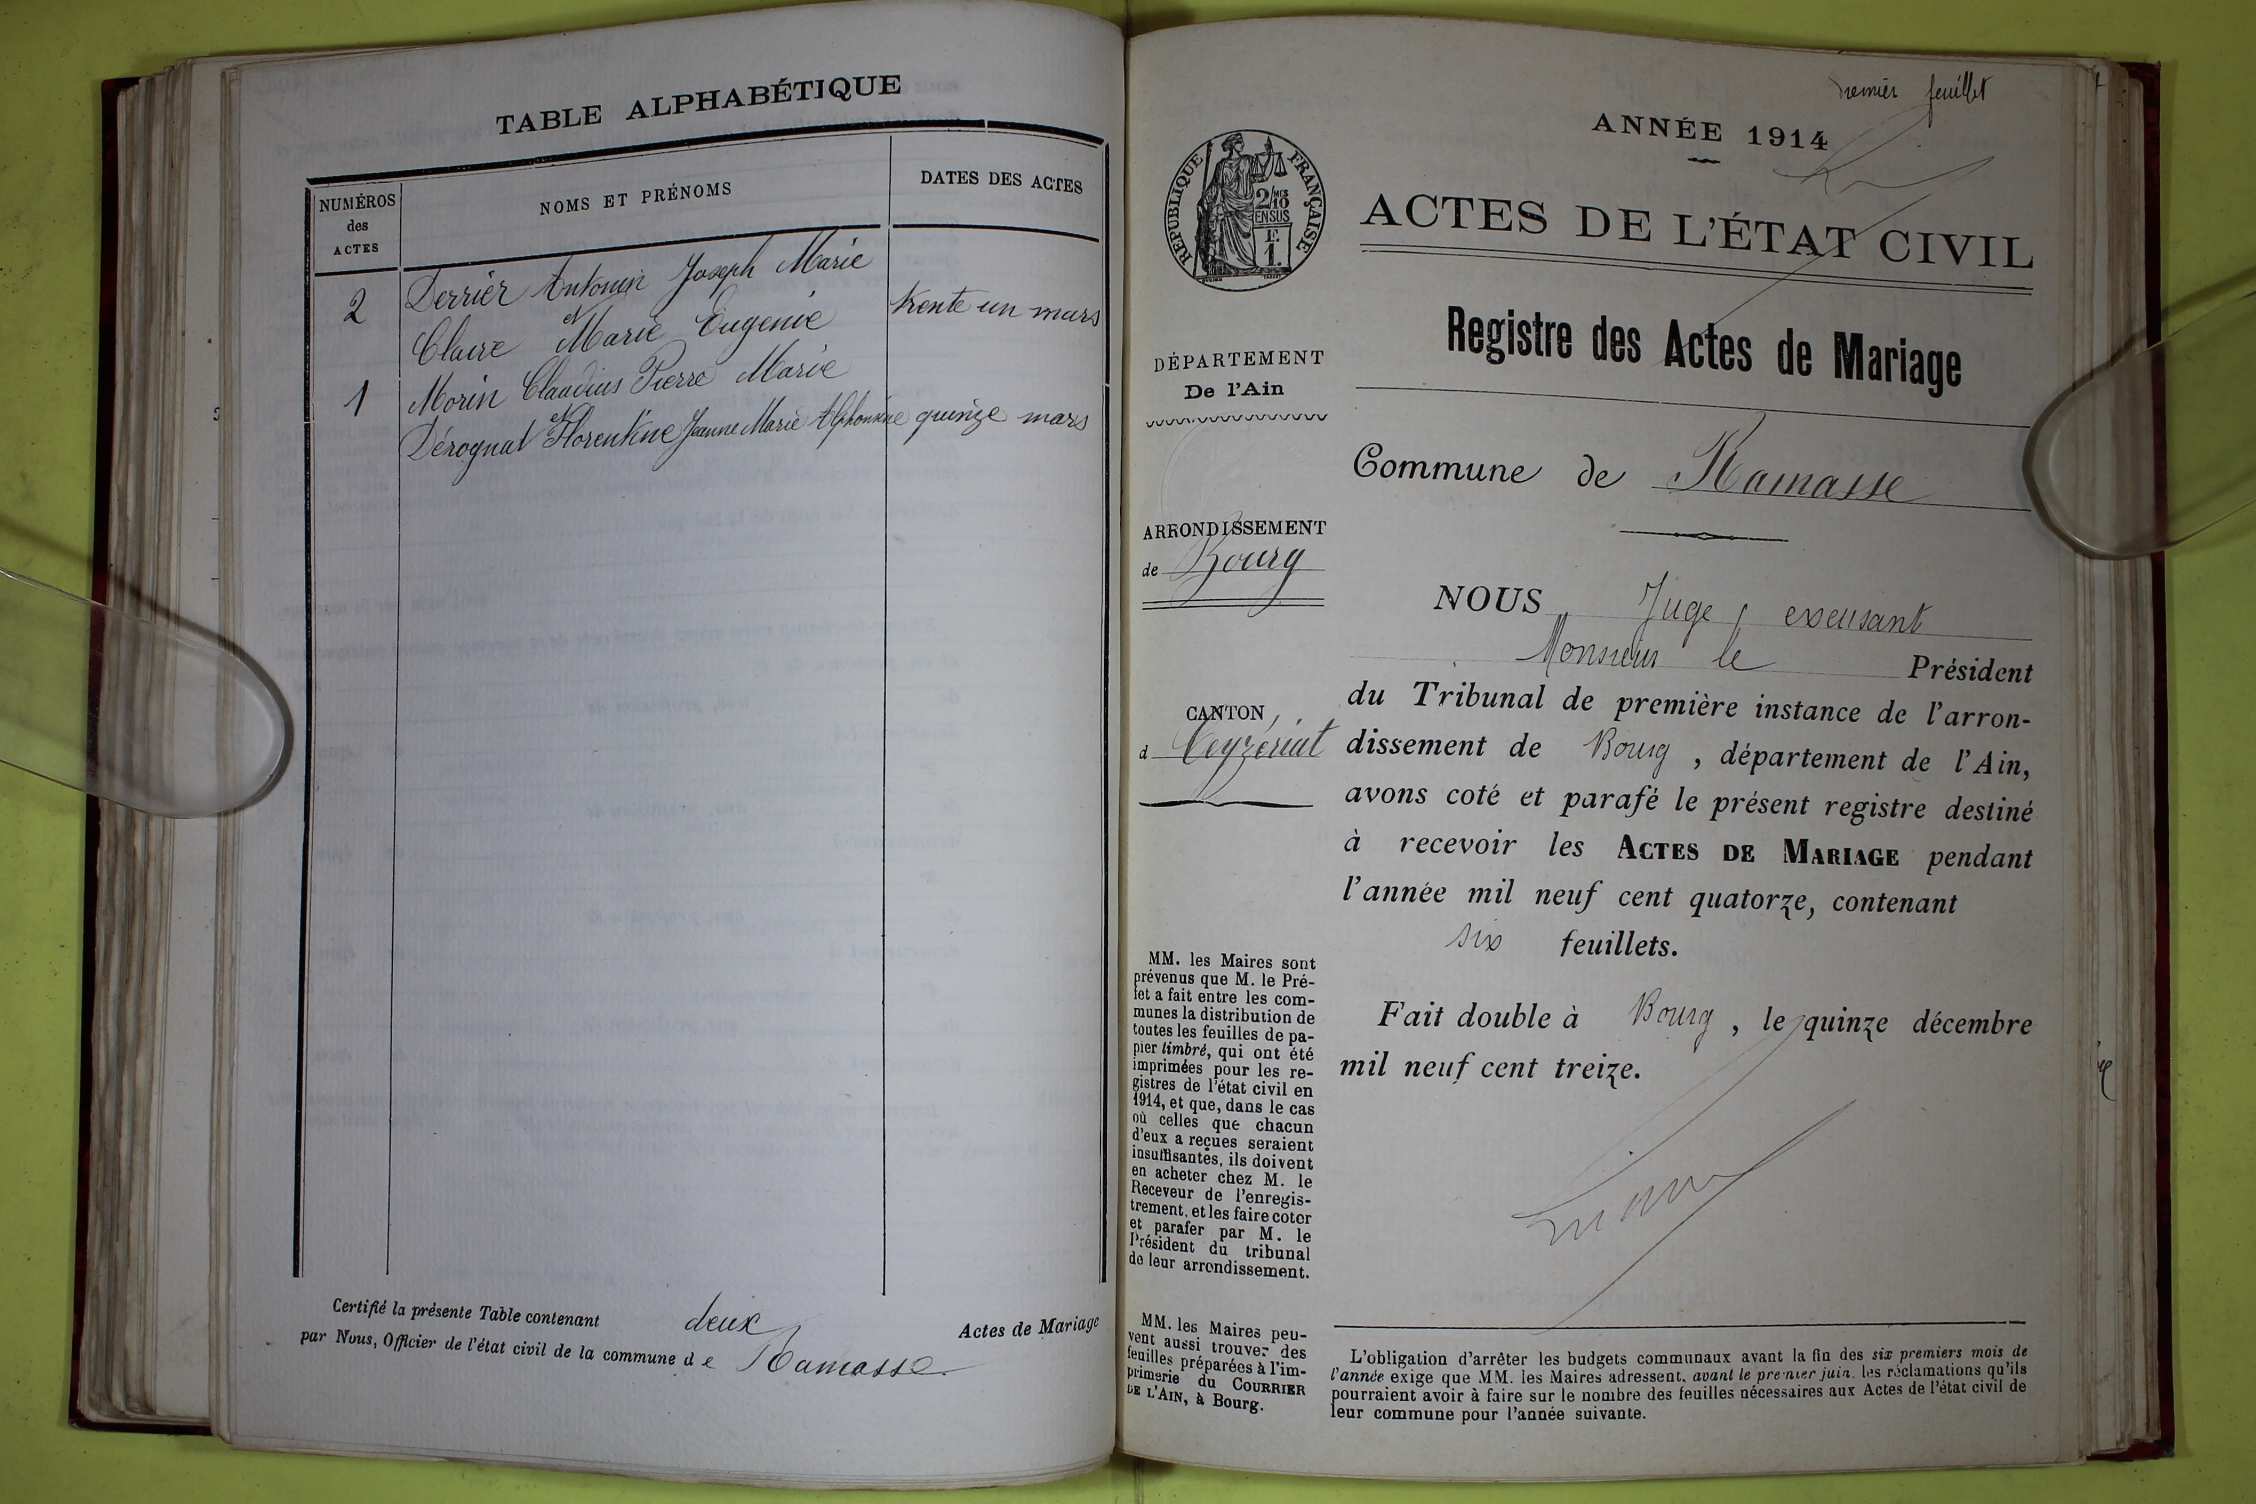 TABLE ALPHABÉTIQUE
NUMÉROS
des
ACTES
NOMS ET PRÉNOMS
DATES DES ACTES
2
Derrier Antonin Joseph Marie
et
Claire Marie Eugénie
trente un mars
1
Morin Claudius Pierre Marie
et
Dérognat Florentine Jeanne Marie Alphonsine
quinze mars
Certifié la présente Table contenant deux Actes de Mariage
par Nous, Officier de l'état civil de la commune de Ramasse
premier feuillet
ANNÉE 1914
RÉPUBLIQUE FRANÇAISE
2/10
EN SUS
E.
1.
ACTES DE L'ÉTAT CIVIL
Registre des Actes de Mariage
DÉPARTEMENT
De l'Ain
Commune de Ramasse
ARRONDISSEMENT
de Bourg
CANTON
d Ceyzériat
NOUS Juge, excusant
Monsieur le Président
du Tribunal de première instance de l'arron-
dissement de Bourg, département de l'Ain,
avons coté et parafé le présent registre destiné
à recevoir les ACTES DE MARIAGE pendant
l'année mil neuf cent quatorze, contenant
six feuillets.
Fait double à Bourg, le quinze décembre
mil neuf cent treize.
MM. les Maires sont
prévenus que M. le Pré-
fet a fait entre les com-
munes la distribution de
toutes les feuilles de pa-
pier timbré, qui ont été
imprimées pour les re-
gistres de l'état civil en
1914, et que, dans le cas
où celles que chacun
d'eux a reçues seraient
insuffisantes, ils doivent
en acheter chez M. le
Receveur de l'enregis-
trement, et les faire coter
et parafer par M. le
Président du tribunal
de leur arrondissement.
MM. les Maires peu-
vent aussi trouver des
feuilles préparées à l'im-
primerie du COURRIER
DE L'AIN, à Bourg.
L'obligation d'arrêter les budgets communaux avant la fin des six premiers mois de
l'année exige que MM. les Maires adressent, avant le premier juin, les réclamations qu'ils
pourraient avoir à faire sur le nombre des feuilles nécessaires aux Actes de l'état civil de
leur commune pour l'année suivante.